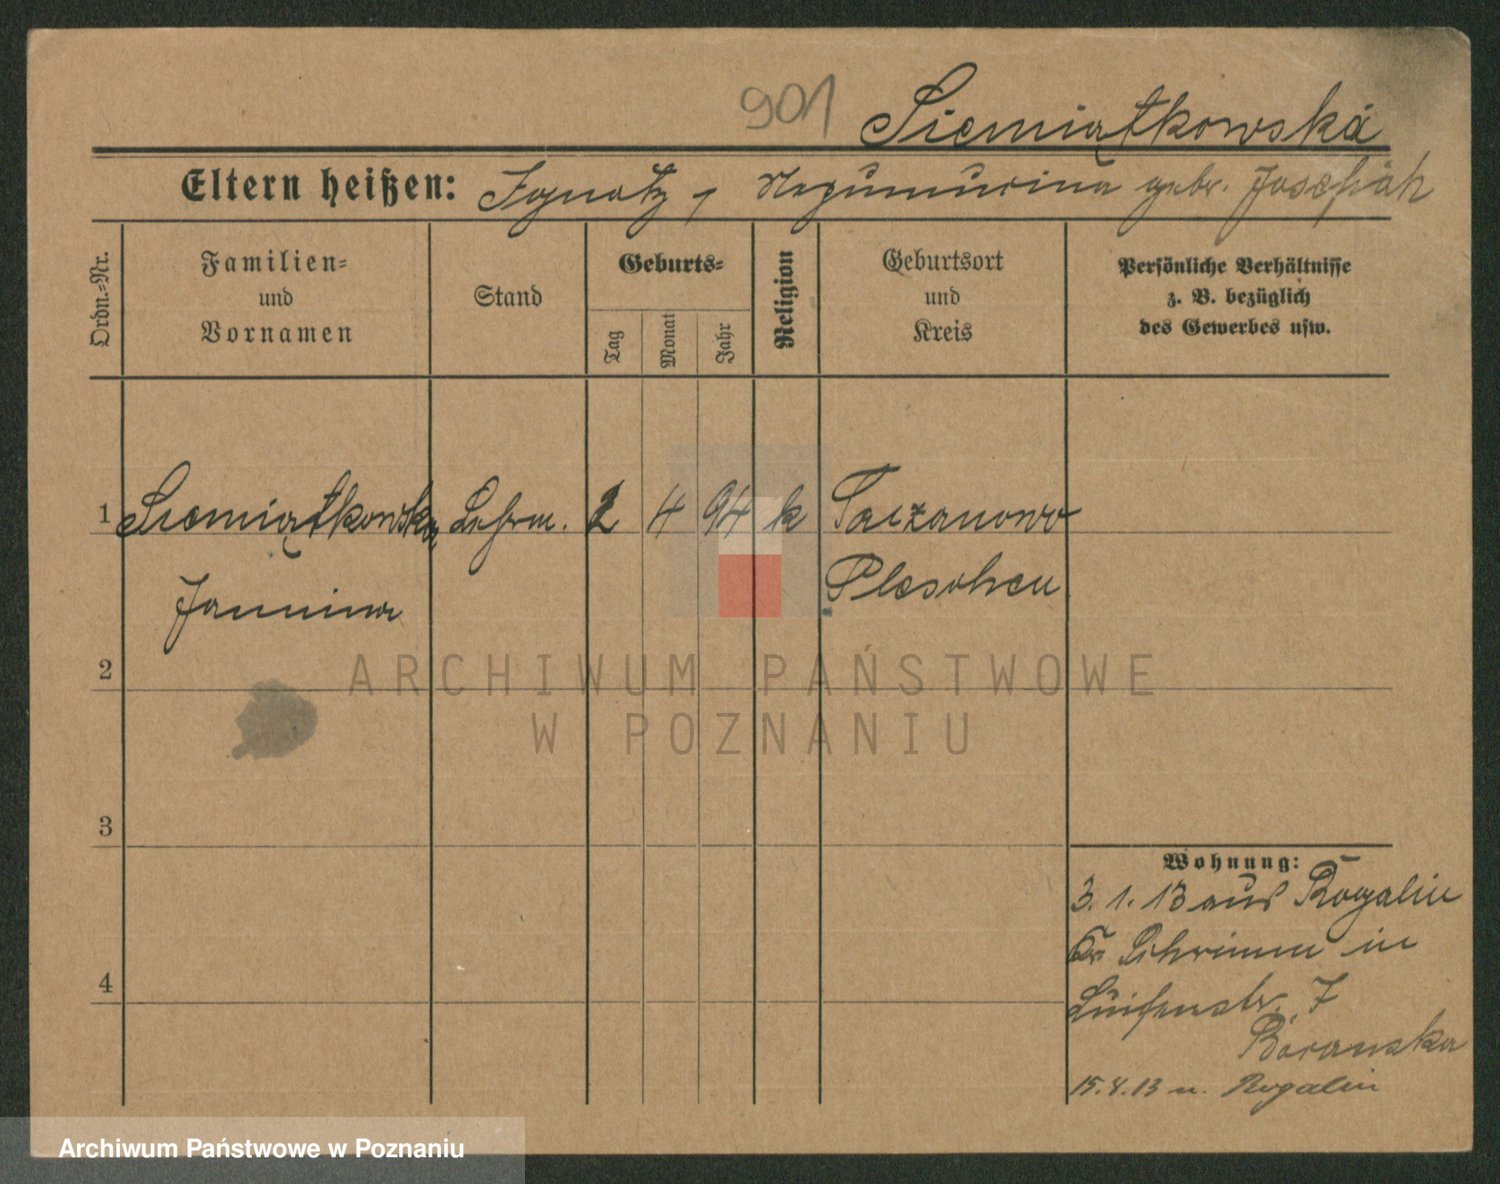 901 Siemiątkowska
Eltern heißen: Ignatz, Nepumucina gebr. Josefiak
Ordn.-Nr.
Familien-
und
Vornamen
Stand
Geburts-
Tag
Monat
Jahr
Religion
Geburtsort
und
Kreis
Persönliche Verhältnisse
z. B. bezüglich
des Gewerbes usw.
1 Siemiątkowska Lehrm. 2 4 94 k Taczanowo
Janina Pleschen
2
ARCHIWUM PAŃSTWOWE
W POZNANIU
3
Wohnung:
3. 1. 13 aus Rogalin
Kr. Schrimm in
4
Luisenstr. 7
15.4.13 n. Rogalin
Archiwum Państwowe w Poznaniu